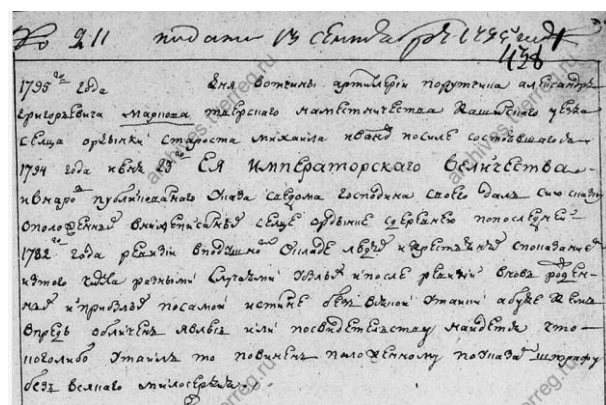 No 211 подана 13 сентября 1795 году
438
1795го года дня вотчины артилерии порутчика александра
григорьевича тверскаго наместничества Кашинского уезда
сельца староста михаила иванов по силе состоявшагося
1794 года июня 23го ЕЯ ИМПЕРАТОРСКАГО ВЕЛИЧЕСТВА
и в народ публикованнаго указа с ведома господина своего дал сию скаску
о положенных в нижеписанном сельце с деревнею по последней
1782го года ревизии в подушной оклад людей и крестьян с показанием
из того числа разными случаями убылых и после ревизии вновь рожден
ных и прибылых по самой истине без всякой утайки а буде кем
впредь обличен явлюсь или по свидетельству найдется что
кого либо утаил то повинен положенному по указам штрафу
без всякаго милосердия
archives.verreg.ru